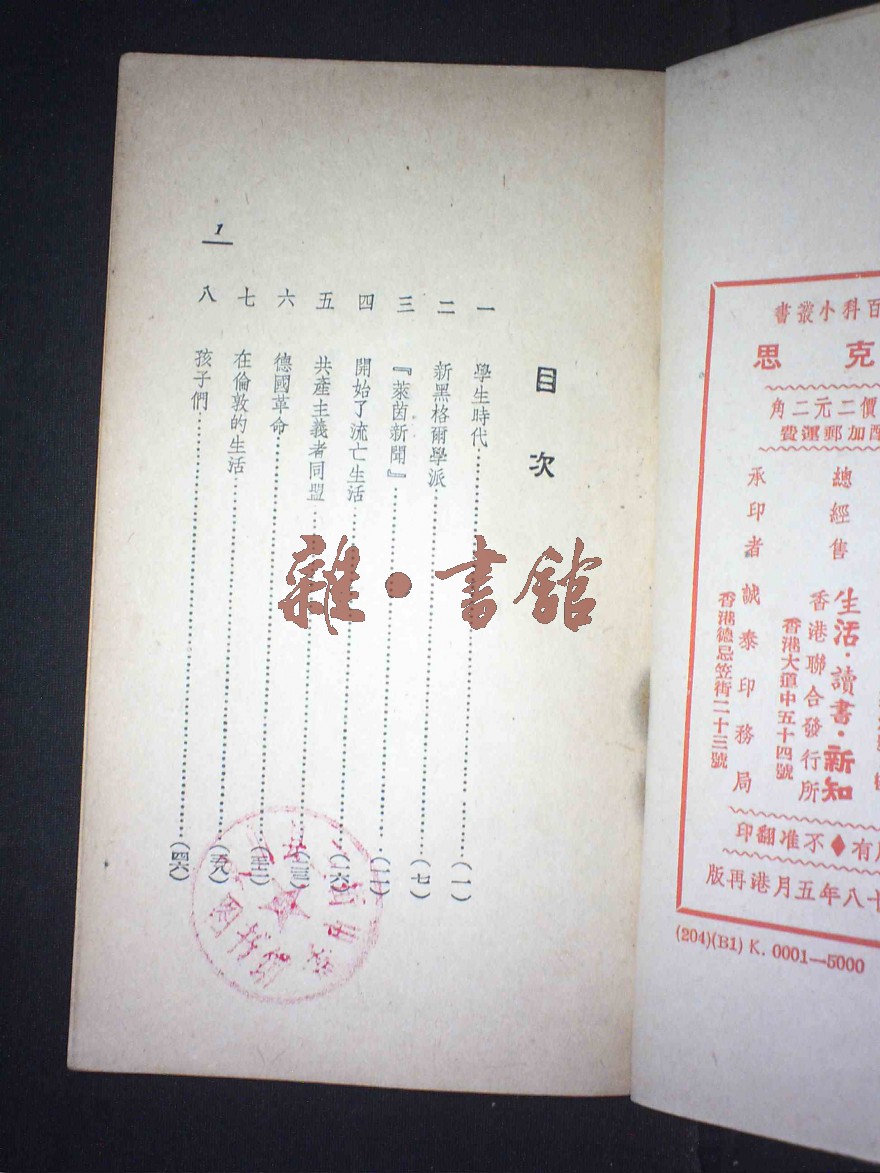 目次
一 學生時代 (一)
二 新黑格爾學派 (七)
三 『萊茵新聞』 (一一)
四 開始了流亡生活 (一六)
五 共產主義者同盟 (二三)
六 德國革命 (三二)
七 在倫敦的生活
八 孩子們 (四六)
1
雜·書館
图书馆
百科小叢書
克思
價二元二角
加郵運費
總經售
生活·讀書·新知
香港聯合發行所
香港大道中五十四號
承印者 誠泰印務局
香港德忌笠街二十三號
有◆不准翻印
十八年五月港再版
(204)(B1) K. 0001—5000